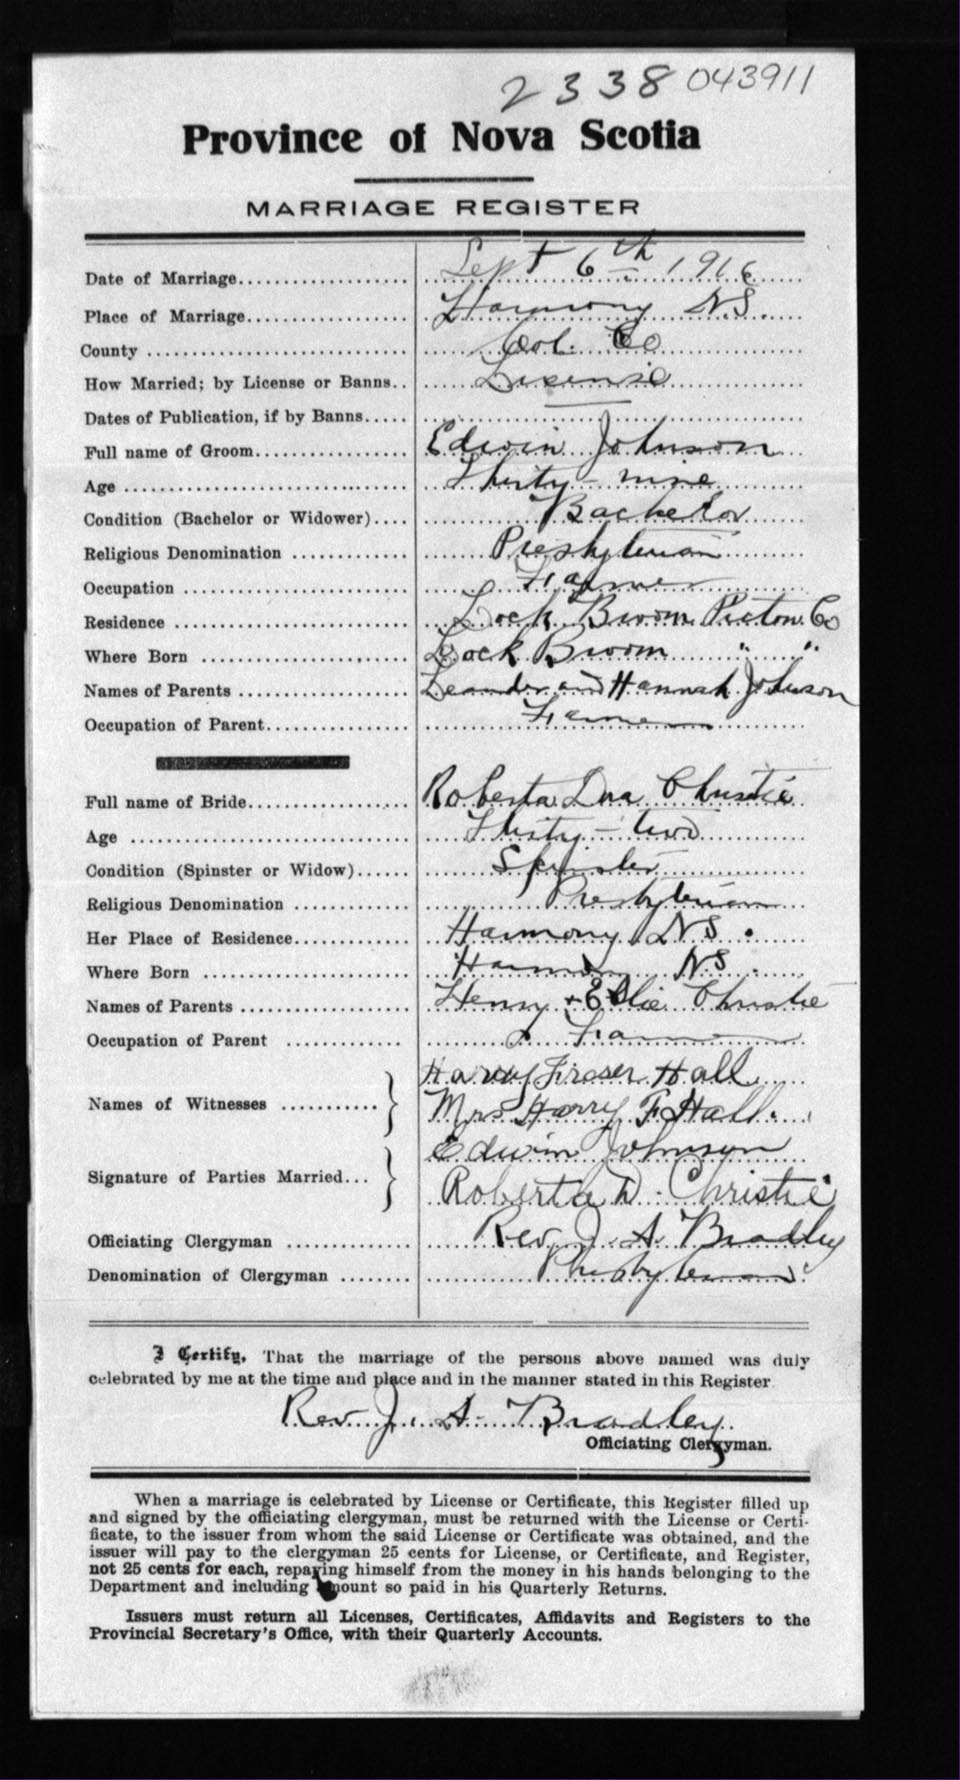 2338 043911
Province of Nova Scotia
MARRIAGE REGISTER
Date of Marriage Sept 6th 1916
Place of Marriage Harmony N.S.
County Col. Co
How Married; by License or Banns License
Dates of Publication, if by Banns —
Full name of Groom Edwin Johnson
Age Thirty-nine
Condition (Bachelor or Widower) Bachelor
Religious Denomination Presbyterian
Occupation Farmer
Residence Lock Broom Pictou Co
Where Born Lock Broom " "
Names of Parents Leander and Hannah Johnson
Occupation of Parent Farmer
Full name of Bride Roberta Christie
Age Thirty-two
Condition (Spinster or Widow) Spinster
Religious Denomination Presbyterian
Her Place of Residence Harmony N.S.
Where Born Harmony N.S.
Names of Parents Henry + Christie
Occupation of Parent Farmer
Names of Witnesses Harry Fraser Hall
Mrs Harry F. Hall.
Signature of Parties Married Edwin Johnson
Roberta D. Christie
Officiating Clergyman Rev. J. A. Bradley
Denomination of Clergyman Presbyterian
I Certify, That the marriage of the persons above named was duly
celebrated by me at the time and place and in the manner stated in this Register
Rev J. A. Bradley
Officiating Clergyman.
When a marriage is celebrated by License or Certificate, this Register filled up
and signed by the officiating clergyman, must be returned with the License or Certi-
ficate, to the issuer from whom the said License or Certificate was obtained, and the
issuer will pay to the clergyman 25 cents for License, or Certificate, and Register,
not 25 cents for each, repaying himself from the money in his hands belonging to the
Department and including amount so paid in his Quarterly Returns.
Issuers must return all Licenses, Certificates, Affidavits and Registers to the
Provincial Secretary's Office, with their Quarterly Accounts.